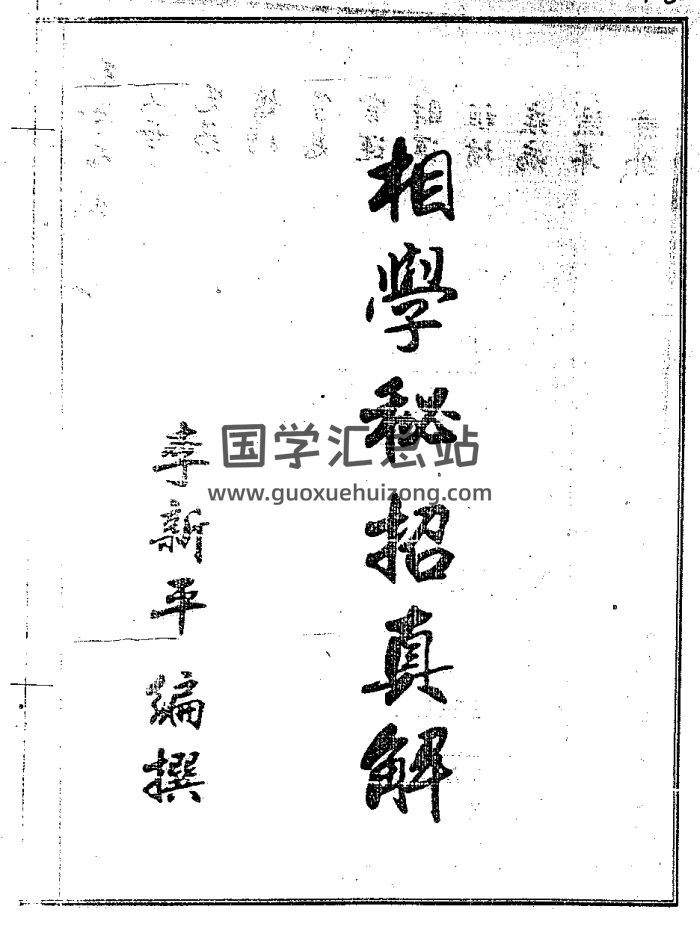 相學秘招真解
李新平 編撰
国学汇总站
www.guoxuehuizong.com